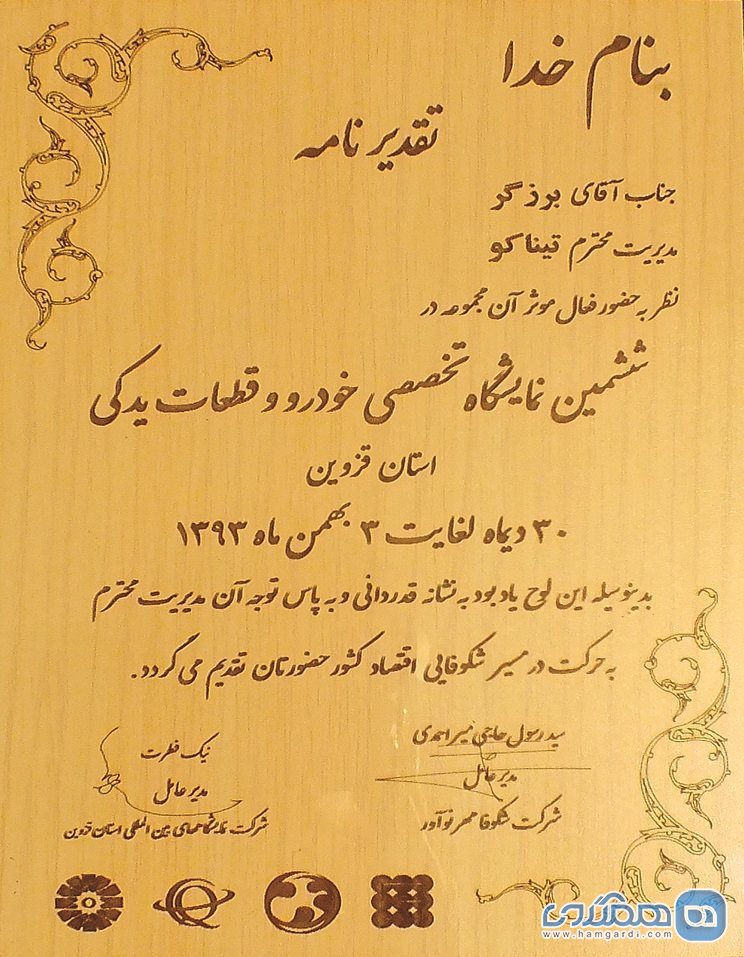 بنام خدا
تقدیر نامه
جناب آقای برذگر
مدیریت محترم تیناکو
نظر به حضور فعال موثر آن مجموعه در
ششمین نمایشگاه تخصصی خودرو و قطعات یدکی
استان قزوین
۳۰ دیماه لغایت ۳ بهمن ماه ۱۳۹۳
بدینوسیله این لوح یادبود به نشانه قدردانی و به پاس توجه آن مدیریت محترم
به حرکت در مسیر شکوفایی اقتصاد کشور حضورتان تقدیم می گردد.
سید رسول حاجی میراحمدی
مدیرعامل
شرکت شکوفا مهر نوآور
نیک فطرت
مدیرعامل
شرکت نمایشگاههای بین المللی استان قزوین
همگردی
www.hamgardi.com